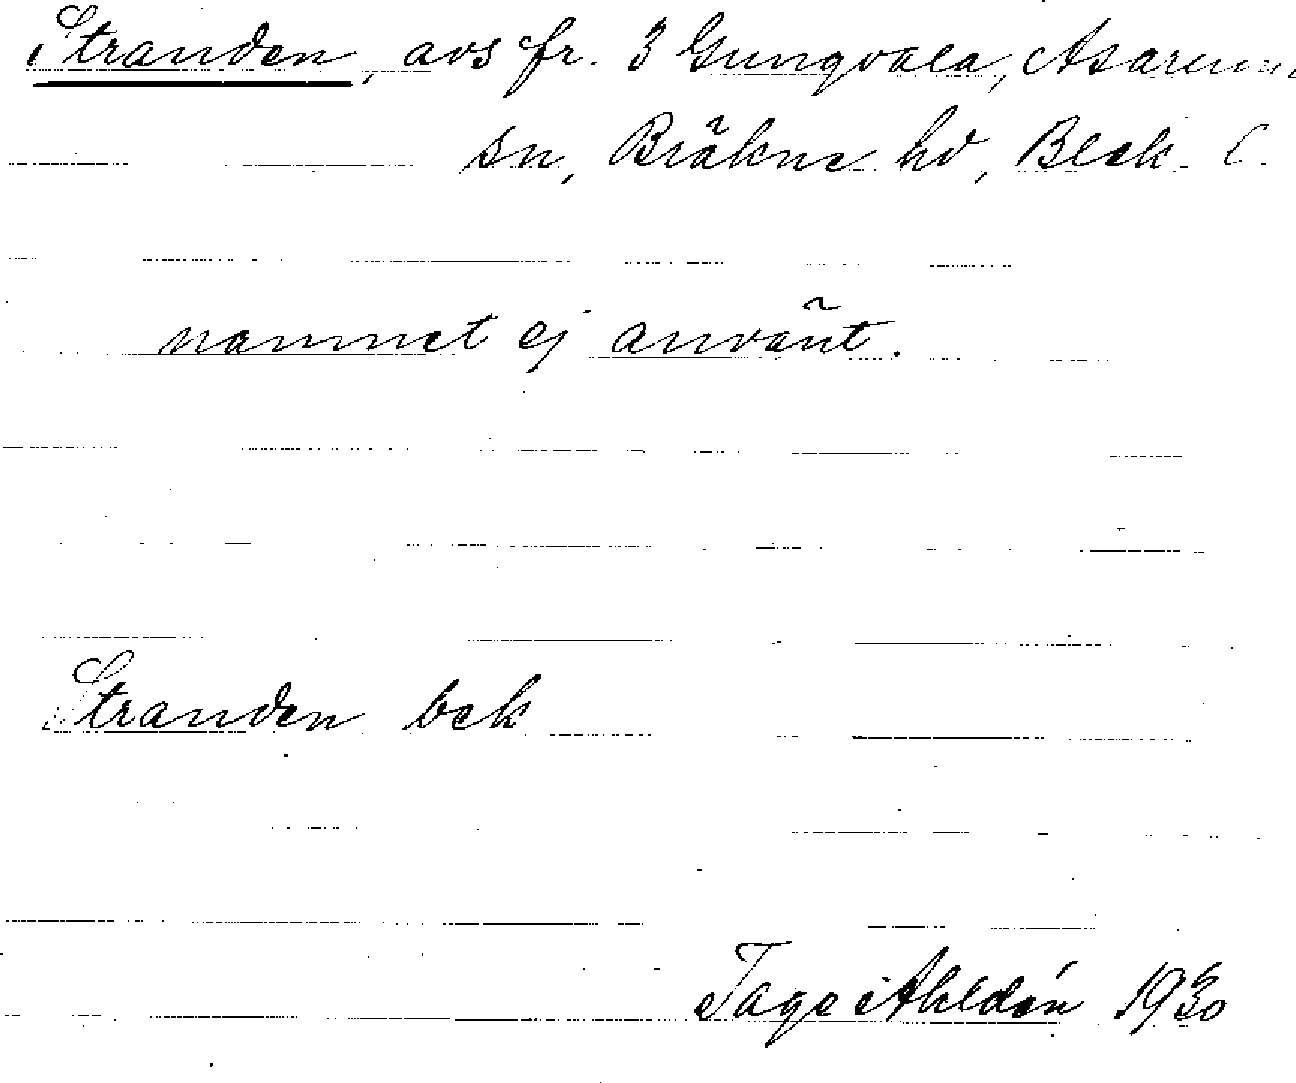 Stranden, avs fr. 3 Gungvala, Asarum
sn, Bräkne hd, Blek. l.
namnet ej använt.
Stranden bek
Tage Ahldén 1930